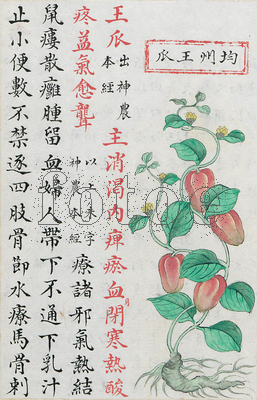 均州王瓜
王瓜出神農本經主消渴内痺瘀血月閉寒熱酸
疼益氣愈聾以上朱字神農本經療諸邪氣熱結
鼠瘻散癰腫留血婦人帶下不通下乳汁
止小便數不禁逐四肢骨節水療馬骨刺
fotoe